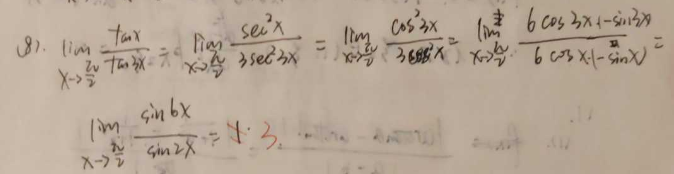 (8). lim x→π/2 tanx/tan3x = lim x→π/2 sec²x/3sec²3x = lim x→π/2 cos²3x/3cos²x = lim x→π/2 6cos3x·(-sin3x)/6cosx·(-sinx) =
lim x→π/2 sin6x/sin2x = 3.